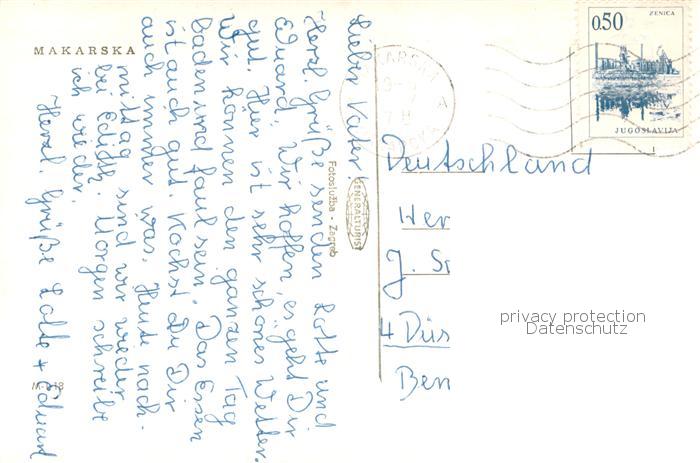 MAKARSKA
Lieber Vater!
Herzl. Grüße senden Lotte und
Eduard, Wir hoffen, es geht Dir
gut. Hier ist sehr schönes Wetter.
Wir können den ganzen Tag
baden und faul sein. Das Essen
ist auch gut. Kochst Du Dir
auch immer was. Heute nach-
mittag sind wir wieder
bei Edith. Morgen schreibe
ich wieder.
Herzl. Grüße Lotte + Eduard
Fotoslužba - Zagreb
GENERALTURIST
0.50
ZENICA
JUGOSLAVIJA
Deutschland
Her
J. Sr
4 Düs
Ben
privacy protection
Datenschutz